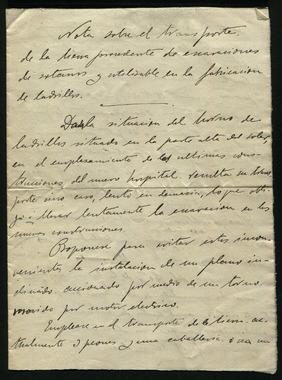 Nota sobre el transporte
de la tierra procedente de excavaciones
de sotanos y utilizable en la fabricacion
de ladrillos.
Dada la situacion del horno de
ladrillos situado en la parte alta del solar,
en el emplazamiento de las ultimas cons-
trucciones del nuevo hospital resulta su trans-
porte caro, lento en demasia, lo que obli-
ga a llevar lentamente la excavacion en las
nuevas construcciones.
Proponese para evitar estos incon-
venientes la instalacion de un plano in-
clinado accionado por medio de un torno
movido por motor electrico.
Emplease en el transporte de la tierra ac-
tualmente 3 peones y una caballeria, o sea un